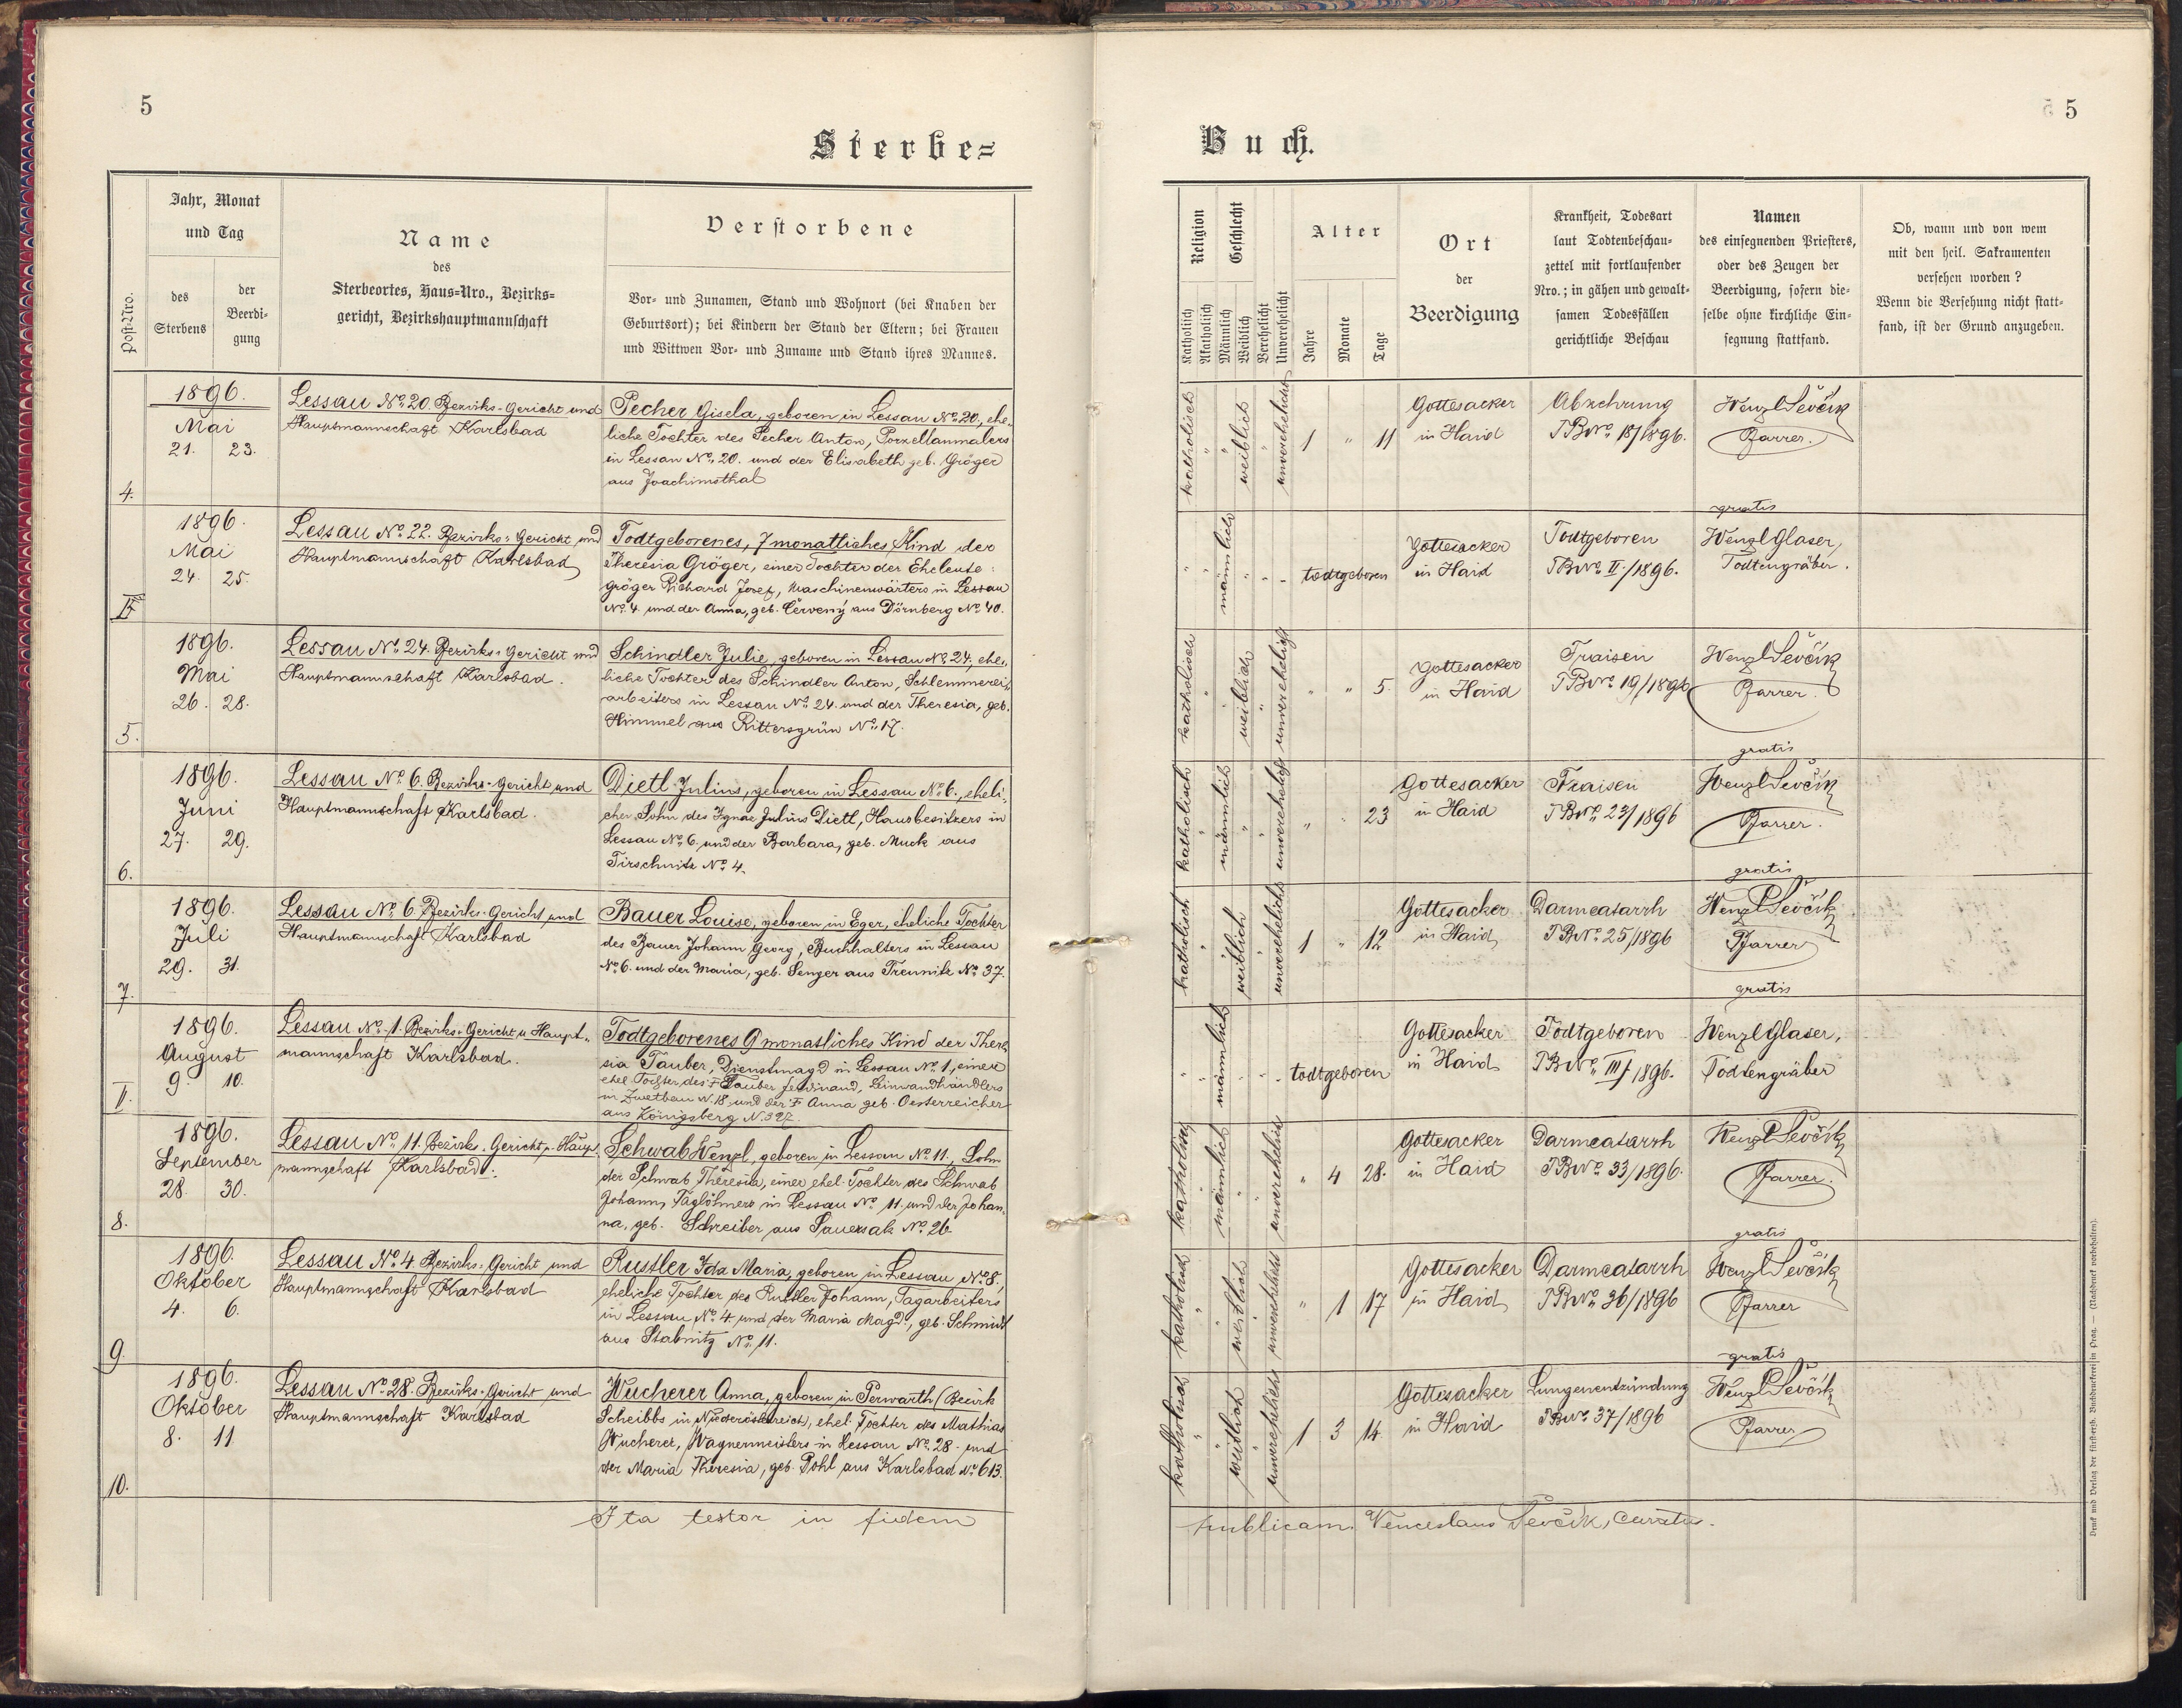 5
Sterbe=
Jahr, Monat
und Tag
Post-Nro.
des
Sterbens
der
Beerdi-
gung
Name
des
Sterbeortes, Haus-Nro., Bezirks-
gericht, Bezirkshauptmannschaft
Verstorbene
Vor- und Zunamen, Stand und Wohnort (bei Knaben der
Geburtsort); bei Kindern der Stand der Eltern; bei Frauen
und Wittwen Vor- und Zuname und Stand ihres Mannes.
4.
1896.
Mai
21. 23.
Lessau No. 20. Bezirks-Gericht und
Hauptmannschaft Karlsbad
Pecher Gisela, geboren in Lessau No. 20., ehe-
liche Tochter des Pecher Anton, Porzellanmalers
in Lessau No. 20. und der Elisabeth geb. Gröger
aus Joachimsthal
1896.
Mai
24. 25.
Lessau No. 22. Bezirks-Gericht und
Hauptmannschaft Karlsbad
Todtgeborenes, 7 monatliches Kind der
Theresia Gröger, einer Tochter der Eheleute
Gröger Richard Josef, Maschinenwärters in Lessau
No. 4 und der Anna, geb. Červený aus Dörnberg No. 40.
5.
1896.
Mai
26. 28.
Lessau No. 24. Bezirks-Gericht und
Hauptmannschaft Karlsbad.
Schindler Julie, geboren in Lessau No. 24, ehe-
liche Tochter des Schindler Anton, Schlemmerei-
arbeiters in Lessau No. 24. und der Theresia, geb.
Himmel aus Rittersgrün No. 17.
6.
1896.
Juni
27. 29.
Lessau No. 6. Bezirks-Gericht und
Hauptmannschaft Karlsbad.
Dietl Julius, geboren in Lessau No. 6., eheli-
cher Sohn des Ignaz Julius Dietl, Hausbesitzers in
Lessau No. 6. und der Barbara, geb. Muck aus
Tirschnitz No. 4.
7.
1896.
Juli
29. 31.
Lessau No. 6. Bezirks-Gericht und
Hauptmannschaft Karlsbad
Bauer Louise, geboren in Eger, eheliche Tochter
des Bauer Johann Georg, Buchhalters in Lessau
No. 6. und der Maria, geb. Senger aus Treunitz No. 37.
1896.
August
9. 10.
Lessau No. 1. Bezirks-Gericht u. Haupt-
mannschaft Karlsbad.
Todtgeborenes 9 monatliches Kind der There-
sia Tauber, Dienstmagd in Lessau No. 1, einer
ehel. Tochter des † Tauber Ferdinand, Leinwandhändlers
in Zwetbau N. 18 und der † Anna geb. Oesterreicher
aus Königsberg N. 327.
8.
1896.
September
28. 30.
Lessau No. 11. Bezirks-Gericht u. Haupt-
mannschaft Karlsbad.
Schwab Wenzl, geboren in Lessau No. 11., Sohn
der Schwab Theresia, einer ehel. Tochter des Schwab
Johann, Taglöhners in Lessau No. 11. und der Johan-
na, geb. Schreiber aus Sauersack No. 26.
9.
1896.
Oktober
4. 6.
Lessau No. 4. Bezirks-Gericht und
Hauptmannschaft Karlsbad
Rustler Ida Maria, geboren in Lessau No. 8,
eheliche Tochter des Rustler Johann, Tagarbeiters
in Lessau No. 4. und der Maria Magd., geb. Schmidt
aus Stabnitz No. 11.
10.
1896.
Oktober
8. 11
Lessau No. 28. Bezirks-Gericht und
Hauptmannschaft Karlsbad
Wucherer Anna, geboren in Perwarth (Bezirk
Scheibbs in Niederösterreich), ehel. Tochter des Mathias
Wucherer, Wagnermeisters in Lessau No. 28. und
der Maria Theresia, geb. Pohl aus Karlsbad No. 613.
Ita testor in fidem
5
Buch.
Religion
Katholisch
Akatholisch
Geschlecht
Männlich
Weiblich
Verehelicht
Unverehelicht
Alter
Jahre
Monate
Tage
Ort
der
Beerdigung
Krankheit, Todesart
laut Todtenbeschau-
zettel mit fortlaufender
Nro.; in gähen und gewalt-
samen Todesfällen
gerichtliche Beschau
Namen
des einsegnenden Priesters,
oder des Zeugen der
Beerdigung, sofern die-
selbe ohne kirchliche Ein-
segnung stattfand.
Ob, wann und von wem
mit den heil. Sakramenten
versehen worden?
Wenn die Versehung nicht statt-
fand, ist der Grund anzugeben.
katholisch " " weiblich " unverehelicht
1 " 11
Gottesacker
in Haid
Abzehrung
TBNo. 18/1896.
Wenzl Ševčík
Pfarrer.
gratis
" männlich " " "
todtgeboren
Gottesacker
in Haid
Todtgeboren
TBNo. II./1896.
Wenzl Glaser,
Todtengräber.
katholisch " " weiblich " unverehelicht
" " 5.
Gottesacker
in Haid
Fraisen
TBNo. 19/1896
Wenzl Ševčík
Pfarrer.
gratis
katholisch " männlich " " unverehelicht
" " 23
Gottesacker
in Haid
Fraisen
TBNo. 23/1896
Wenzl Ševčík
Pfarrer.
gratis
katholisch " " weiblich " unverehelicht
1 " 12
Gottesacker
in Haid
Darmcatarrh
TBNo. 25/1896
Wenzl Ševčík
Pfarrer
gratis
" männlich " " "
todtgeboren
Gottesacker
in Haid
Todtgeboren
TBNo. III/1896.
Wenzl Glaser,
Todtengräber
katholisch " männlich " " unverehelicht
" 4 28.
Gottesacker
in Haid
Darmcatarrh
TBNo. 33/1896.
Wenzl Ševčík
Pfarrer.
gratis
katholisch " " weiblich " unverehelicht
" 1 17
Gottesacker
in Haid
Darmcatarrh
TBNo. 36/1896
Wenzl Ševčík
Pfarrer
gratis
katholisch " " weiblich " unverehelicht
1 3 14
Gottesacker
in Haid
Lungenentzündung
TBNo. 37/1896
Wenzl Ševčík
Pfarrer
publicam. Venceslaus Ševčík, curatus.
Druck und Verlag der fürsterzb. Buchdruckerei in Prag. — (Nachdruck vorbehalten).